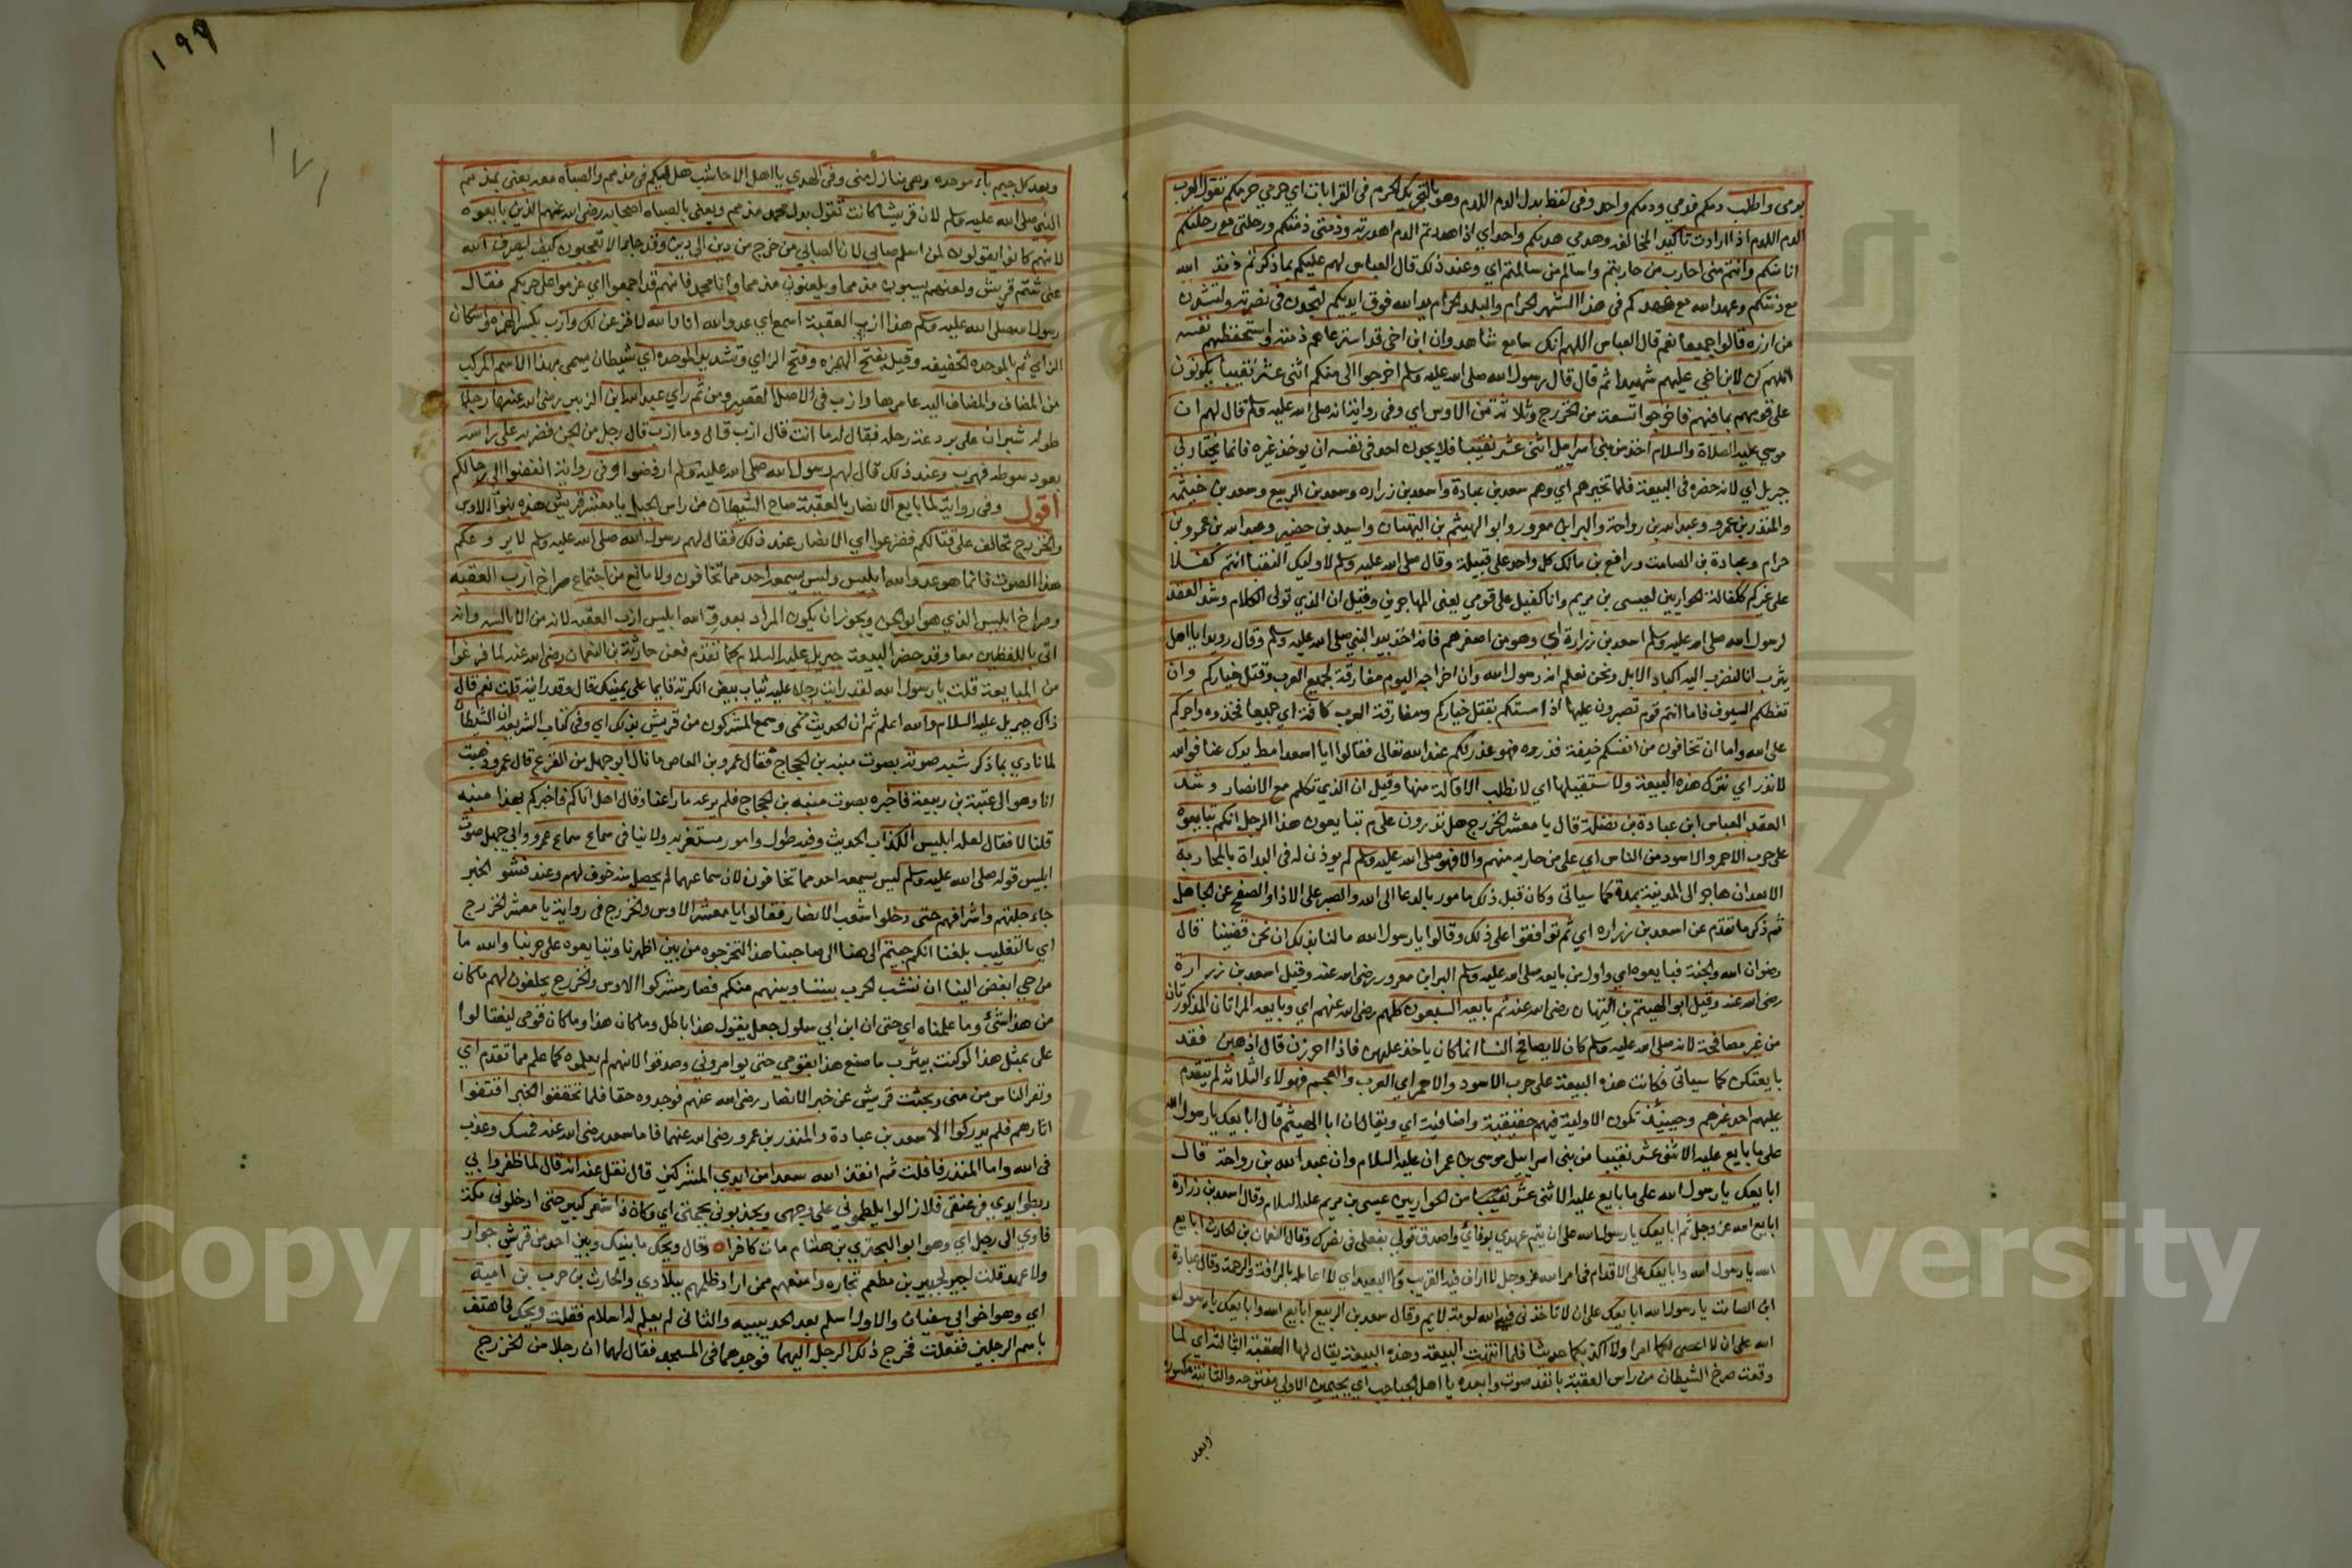 بدمى واطلب دمكم فدمي ودمكم واحد وفى لفظ بدل الدم اللدم وهو بالتحريك الحرم فى القرابات اي حرمي حرمكم تقول العرب
الدم اللدم اذا ارادت تاكيد المخالفه وهدمي هدمكم واحد اي اذا هدمتم الدم اهدرته وذمتى ذمتكم ورحلتى مع رحلتكم
انا منكم وانتم منى احارب من حاربتم واسالم من سالمتم اي وعند ذلك قال العباس لهم عليكم بما ذكرتم ذمة الله
مع ذمتكم وعهد الله مع عهدكم فى هذا الشهر الحرام والبلد الحرام يد الله فوق ايديكم لتجدون فى نصرته ولتشدن
من ازره قالوا جميعا نعم قال العباس اللهم انك سامع شاهد وان ابن اخى قد استرعاهم ذمته واستحفظهم نفسه
اللهم كن لابن اخي عليهم شهيدا ثم قال قال رسول الله صلى الله عليه وسلم اخرجوا الى منكم اثنى عشر نقيبا يكونون
على قومهم بما فيهم فاخرجوا تسعة من الخزرج وثلاثة من الاوس اي وفى رواية انه صلى الله عليه وسلم قال لهم ان
موسى عليه الصلاة والسلام اخذ من بنى اسرايل اثنى عشر نقيبا فلا يجدن احد فى نفسه ان يوخذ غيره فانما يختار لي
جبريل اي لانه حضره فى البيعة فلما تخيرهم اي وهم سعد بن عبادة واسعد بن زراره وسعد بن الربيع وسعد بن خيثمه
والمنذر بن عمرو وعبد الله بن رواحة والبرا بن معرور وابو الهيثم بن التيهان واسيد بن حضير وعبد الله بن عمرو بن
حرام وعبادة بن الصامت ورافع بن مالك كل واحد على قبيلة وقال صلى الله عليه وسلم لاوليك النقبا انتم كفلا
على غيركم ككفالة الحواريين لعيسى بن مريم وانا كفيل على قومي يعنى المهاجرين وقيل ان الذي تولى الكلام وشد العقد
لرسول الله صلى الله عليه وسلم اسعد بن زرارة اي وهو من اصغرهم فانه اخذ بيد النبي صلى الله عليه وسلم وقال رويدا يا اهل
يثرب انا لنضرب اليه اكباد الابل ونحن نعلم انه رسول الله وان اخراجه اليوم مفارقة لجميع العرب وقتل خياركم وان
تعضكم السيوف فاما انتم قوم تصبرون عليها اذا مستكم بقتل خياركم ومفارقة العرب كافة اي جميعا فخذوه واجركم
على الله واما ان تخافون من انفسكم خيفة فذروه فهو عذر لكم عند الله تعالى فقالوا ايا اسعد امط يدك عنا فوالله
لا نذر اي نترك هذه البيعة ولا نستقيلها اي لا نطلب الاقالة منها وقيل ان الذي تكلم مع الانصار وشد
العقد العباس ابن عبادة بن نضلة قال يا معشر الخزرج هل تدرون على م تبايعون هذا الرجل انكم تبايعوه
على حرب الاحمر والاسود من الناس اي على من حاربه منهم والا فهو صلى الله عليه وسلم لم يوذن له فى البداة بالمحاربه
الا بعد ان هاجر الى المدينة بمدة كما سياتى وكان قبل ذلك مامور بالدعا الى الله والصبر على الاذا والصفح عن الجاهل
ثم ذكر ما تقدم عن اسعد بن زراره اي ثم توافقوا على ذلك وقالوا يا رسول الله ما لنا بذلك ان نحن قضينا قال
رضوان الله والجنة فبايعوه اي واول من بايعه صلى الله عليه وسلم البرا بن معرور رضى الله عنه وقيل اسعد بن زرارة
رضى الله عنه وقيل ابو الهيثم بن التيهان رضى الله عنه ثم بايعه السبعون كلهم رضى الله عنهم اي وبايعه المراتان المذكورتان
من غير مصافحة لانه صلى الله عليه وسلم كان لا يصافح النسا انما كان ياخذ عليهن فاذا احرزن قال اذهبن فقد
بايعتكن كما سياتى فكانت هذه البيعة على حرب الاسود والاحمر اي العرب والعجم فهولاء الثلاثه لم يتقدم
عليهم احد غيرهم وحينئذ تكون الاولية فيهم حقيقية واضافية اي ويقال ان ابا الهيثم قال ابايعك يا رسول الله
على ما بايع عليه الاثنى عشر نقيبا من بنى اسراييل موسى بن عمران عليه السلام وان عبد الله بن رواحة قال
ابايعك يا رسول الله على ما بايع عليه الاثنى عشر نقيبا من الحواريين عيسى بن مريم عليه السلام وقال اسعد بن زرارة
ابايع الله عز وجل ثم ابايعك يا رسول الله على ان يتم عهدي بوفائ واصدق قولى بفعلى فى نصرك وقال النعمان بن الحارث ابايع
الله يا رسول الله وابايعك على الاقدام فى امر الله عز وجل لا اراف فيه القريب ولا البعيد اي لا اعامله بالرافة والرحمة وقال عبادة
ابن الصامت يا رسول الله ابايعك على ان لا تاخذنى فى الله لومة لايم وقال سعد بن الربيع ابايع الله وابايعك يا رسول
الله على ان لا اعصى لكما امرا ولا اكذبكما حديثا فلما انتهت البيعة وهذه البيعة يقال لها العقبة الثالثة اي لما
وقعت صرخ الشيطان من راس العقبة بانفذ صوت وابعده يا اهل الجباجب اي بجيمين الاولى مفتوحه والثانية مكسوره
وبعد
١٩٩
١٧١
وبعد كل جيم باء موحده وهي منازل منى وفى الهدي يا اهل الاخاشب هل لكم فى مذمم والصباه معه يعنى بمذمم
النبي صلى الله عليه وسلم لان قريشا كانت تقول بدل محمد مذمم ويعنى بالصباه اصحابه رضى الله عنهم الذين بايعوه
لانهم كانوا يقولون لمن اسلم صابي لان الصابي من خرج من دين الى دين وقد جا الا تعجبون كيف يصرف الله
عنى شتم قريش ولعنهم يسبون مذمما ويلعنون مذمما وانا محمد فانهم قد اجمعوا اي عزموا على حربكم فقال
رسول الله صلى الله عليه وسلم هذا ازب العقبة اسمع اي عدو الله اما والله لافرغن لك وازب بكسر الهمزه واسكان
الزاي ثم بالموحده الخفيفه وقيل بفتح الهمزه وفتح الزاي وتشديد الموحده اي شيطان يسمى بهذا الاسم المركب
من المضاف والمضاف اليه عامرها وازب فى الاصل القصير ومن ثم راي عبد الله ابن الزبير رضى الله عنهما رجلا
طوله شبران على بردعة رحله فقال له ما انت قال ازب قال وما ازب قال رجل من الجن فضربه على راسه
بعود سوطه فهرب وعند ذلك قال لهم رسول الله صلى الله عليه وسلم ارفضوا وفى رواية انفضوا الى رحالكم
اقول وفى رواية لما بايع الانصار بالعقبة صاح الشيطان من راس الجبل يا معشر قريش هذه بنو الاوس
والخزرج تحالف على قتالكم ففزعوا اي الانصار عند ذلك فقال لهم رسول الله صلى الله عليه وسلم لا يروعكم
هذا الصوت فانما هو عدو الله ابليس وليس يسمعه احد مما تخافون ولا مانع من اجتماع صراخ ازب العقبه
وصراخ ابليس الذي هو ابو الجن ويجوز ان يكون المراد بعدو الله ابليس ازب العقبه لانه من الابالسه وانه
اتى باللفظين معا وقد حضر البيعة جبريل عليه السلام كما تقدم فعن حارثة بن النعمان رضى الله عنه لما فرغوا
من المبايعة قلت يا رسول الله لقد رايت رجلا عليه ثياب بيض انكرته قايما على يمينك قال وقد رايته قلت نعم قال
ذاك جبريل عليه السلام والله اعلم ثم ان الحديث نمى وسمع المشركون من قريش بذلك اي وفى كتاب الشريعه ان الشيطان
لما نادي بما ذكر شبه صوته بصوت منبه بن الحجاج فقال عمرو بن العاص ما قال ابو جهل من الفزع قال عمرو ذهبت
انا وهو الى عتبة بن ربيعة فاخبره بصوت منبه بن الحجاج فلم يرعه ما راعنا وقال هل اتاكم فاخبركم بهذا منبه
قلنا لا فقال لعله ابليس الكذاب الحديث وفيه طول وامور مستغربه ولا ينافى سماع سماع عمرو وابى جهل صوت
ابليس قوله صلى الله عليه وسلم ليس يسمعه احد مما تخافون لان سماعهما لم يحصل منه خوف لهم وعند فشو الخبر
جاء جلتهم واشرافهم حتى دخلوا شعب الانصار فقالوا يا معشر الاوس والخزرج فى رواية يا معشر الخزرج
اي بالتغليب بلغنا انكم جيتم الى هنا الى صاحبنا هذا لتخرجوه من بين اظهرنا وتبايعوه على حربنا والله ما
من حي ابغض الينا ان تنشب الحرب بيننا وبينهم منكم فصار مشركوا الاوس والخزرج يحلفون لهم ما كان
من هذا شئ وما علمناه اي حتى ان ابن ابي سلول جعل يقول هذا باطل وما كان هذا وما كان قومى ليفتالوا
على بمثل هذا لو كنت بيثرب ما صنع هذا بقومي حتى يوامروني وصدقوا لانهم لم يعلموه كما علم مما تقدم اي
ونفر الناس من منى وبحثت قريش عن خبر الانصار رضى الله عنهم فوجدوه حقا فلما تحققوا الخبر اقتفوا
اثارهم فلم يدركوا الا سعد بن عبادة والمنذر بن عمرو رضى الله عنهما فاما سعد رضى الله عنه فمسك وعذب
فى الله واما المنذر فافلت ثم انقذ الله سعدا من ايدي المشركين قال نقل عنه انه قال لما ظفروا بي
ربطوا يدي فى عنقى فلا زالوا يلطموني على وجهى ويجذبونى بجمتى اي وكان ذا شعر كبير حتى ادخلونى مكة
فاوي الى رجل اي وهو ابو البحتري بن هشام مات كافرا وقال ويحك ما بينك وبين احد من قريش جوار
ولا عهد قلت لجبير بن مطعم تجاره وامنعهم ممن اراد ظلمهم ببلادي والحارث بن حرب بن امية
اي وهو اخو ابي سفيان والاول اسلم بعد الحديبيه والثانى لم يعلم له اسلام فقلت ويحك فاهتف
باسم الرجلين ففعلت فخرج ذلك الرجل اليهما فوجدهما فى المسجد فقال لهما ان رجلا من الخزرج
Copyright © King Saud University